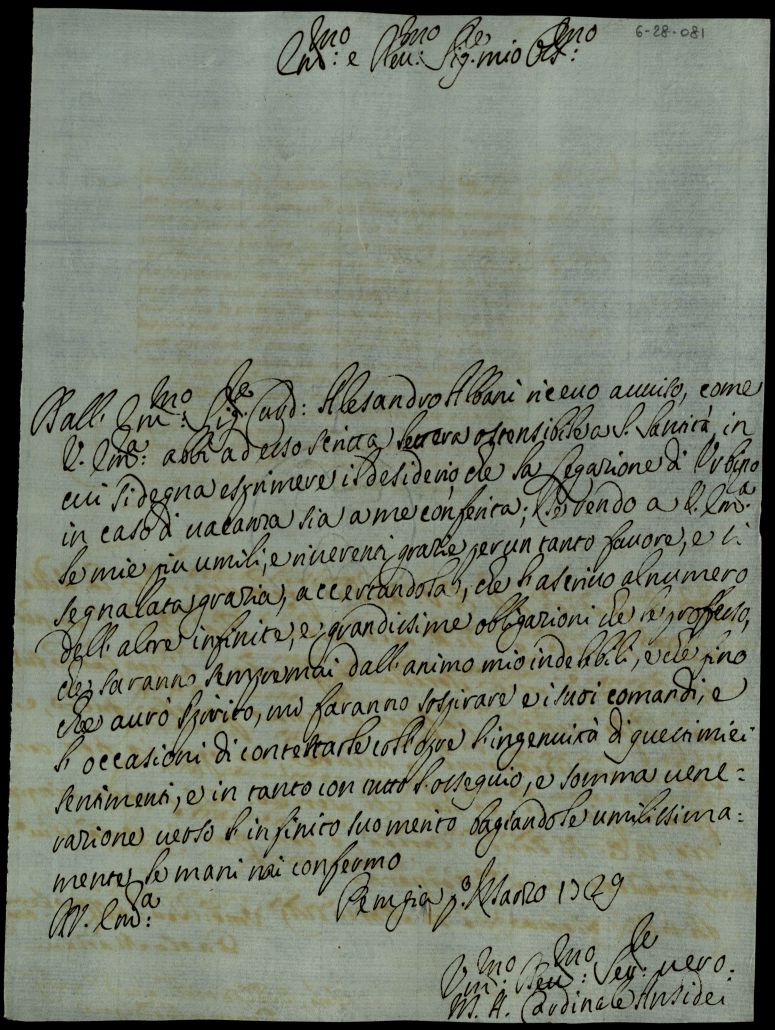 6-28-081
Em:mo e Reu:mo Sig:re mio Oss:mo
Dall' Em:mo Sig:re Card: Alesandro Albani riceuo auuiso, come
V. Em:a abbi adesso scritta lettera ostensibile a S. Santità, in
cui si degna esprimere il desiderio, che la Legazione di Urbino
in caso di uacanza sia a me conferita; Rendendo a V. Em:a
le mie piu umili, e riuerenti grazie per un tanto fauore, e
segnalata grazia, accertandola, che l'ascriuo al numero
dell'altre infinite, e grandissime obbligazioni che le professo,
che saranno sempremai dall'animo mio indelebili, e che fino
che aurò spirito, mi faranno sospirare e i suoi comandi, e
l'occasioni di contestarle coll'opre l'ingenuità di questi miei
sentimenti, e in tanto con tutto l'ossequio, e somma uene=
razione uerso l'infinito suo merito bagiandole umilissima=
mente le mani mi confermo
Di V. Em:a
Perugia p:o Marzo 1729
Um:mo Deu:mo Ser:re uero:
M. A. Cardinale Ansidei